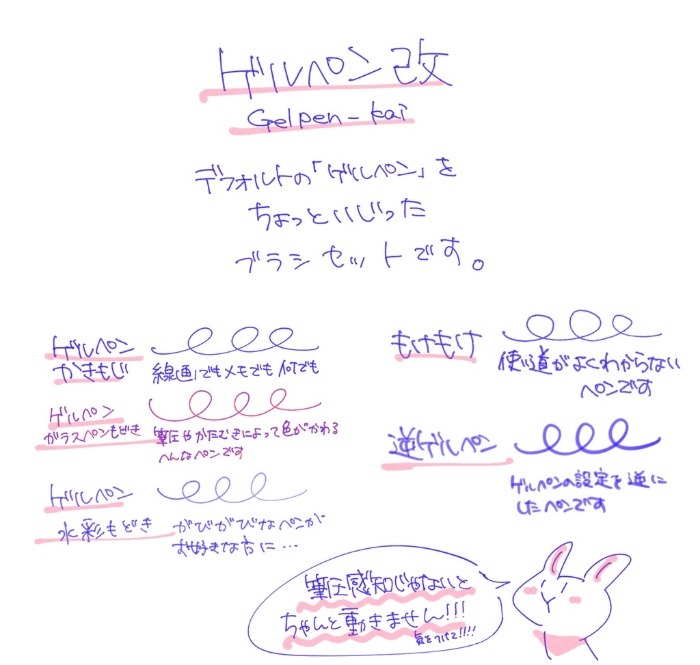 ゲルペン改
Gelpen-kai
デフォルトの「ゲルペン」を
ちょっといじった
ブラシセットです。
ゲルペン
かきもじ
線画でもメモでも何でも
ゲルペン
ガラスペンもどき
筆圧やかたむきによって色がかわる
へんなペンです
ゲルペン
水彩もどき
がびがびなペンが
お好きな方に…
もけもけ
使い道がよくわからない
ペンです
逆ゲルペン
ゲルペンの設定を逆に
したペンです
筆圧感知じゃないと
ちゃんと動きません!!!
気をつけて!!!!